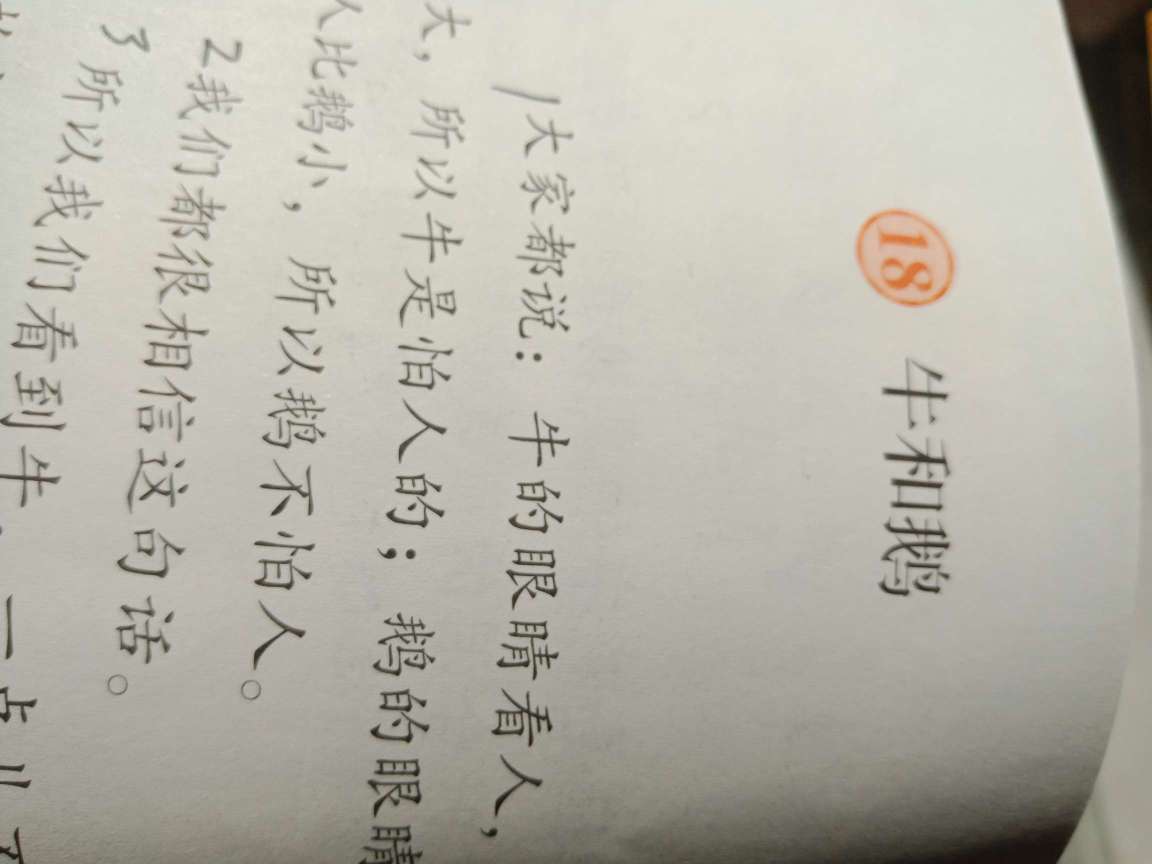 18 牛和鹅
1 大家都说：牛的眼睛看人，
大，所以牛是怕人的；鹅的眼睛
人比鹅小，所以鹅不怕人。
2 我们都很相信这句话。
3 所以我们看到牛，一点儿不